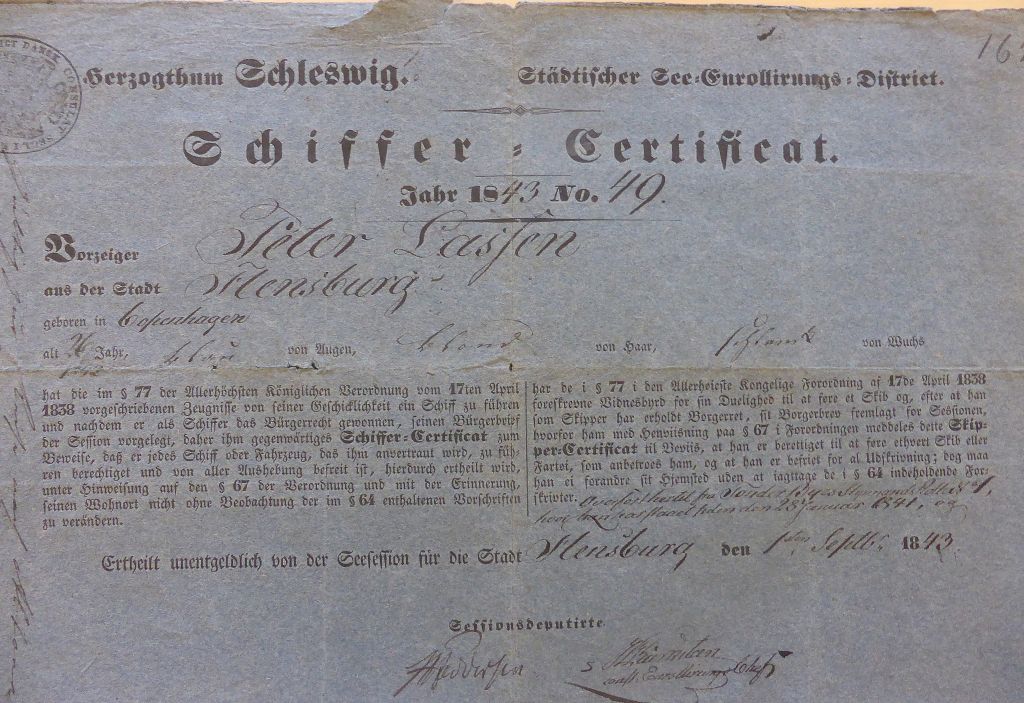 Herzogthum Schleswig.
Städtischer See-Enrollirungs-District.
Schiffer-Certificat.
Jahr 1843 No. 49.
Vorzeiger Peter Lassen
aus der Stadt Flensburg
geboren in Copenhagen
alt 26 Jahr, blau von Augen, blond von Haar, schlank von Wuchs
hat die im § 77 der Allerhöchsten Königlichen Verordnung vom 17ten April
1838 vorgeschriebenen Zeugnisse von seiner Geschicklichkeit ein Schiff zu führen
und nachdem er als Schiffer das Bürgerrecht gewonnen, seinen Bürgerbrief
der Session vorgelegt, daher ihm gegenwärtiges Schiffer-Certificat zum
Beweise, daß er jedes Schiff oder Fahrzeug, das ihm anvertraut wird, zu füh-
ren berechtiget und von aller Aushebung befreit ist, hierdurch ertheilt wird,
unter Hinweisung auf den § 67 der Verordnung und mit der Erinnerung,
seinen Wohnort nicht ohne Beobachtung der im § 64 enthaltenen Vorschriften
zu verändern.
har de i § 77 i den Allerheieste Kongelige Forordning af 17de April 1838
foreskrevne Vidnesbyrd for sin Duelighed til at føre et Skib og, efter at han
som Skipper har erholdt Borgerret, sit Borgerbrev fremlagt for Sessionen,
hvorfor ham med Henviisning paa § 67 i Forordningen meddeles dette Skip-
per-Certificat til Beviis, at han er berettiget til at føre ethvert Skib eller
Fartøi, som anbetroes ham, og at han er befriet for al Udskrivning; dog maa
han ei forandre sit Hjemsted uden at iagttage de i § 64 indeholdende For-
skrivter.
Ertheilt unentgeldlich von der Seesession für die Stadt Flensburg den 1sten Septbr. 1843.
Sessionsdeputirte